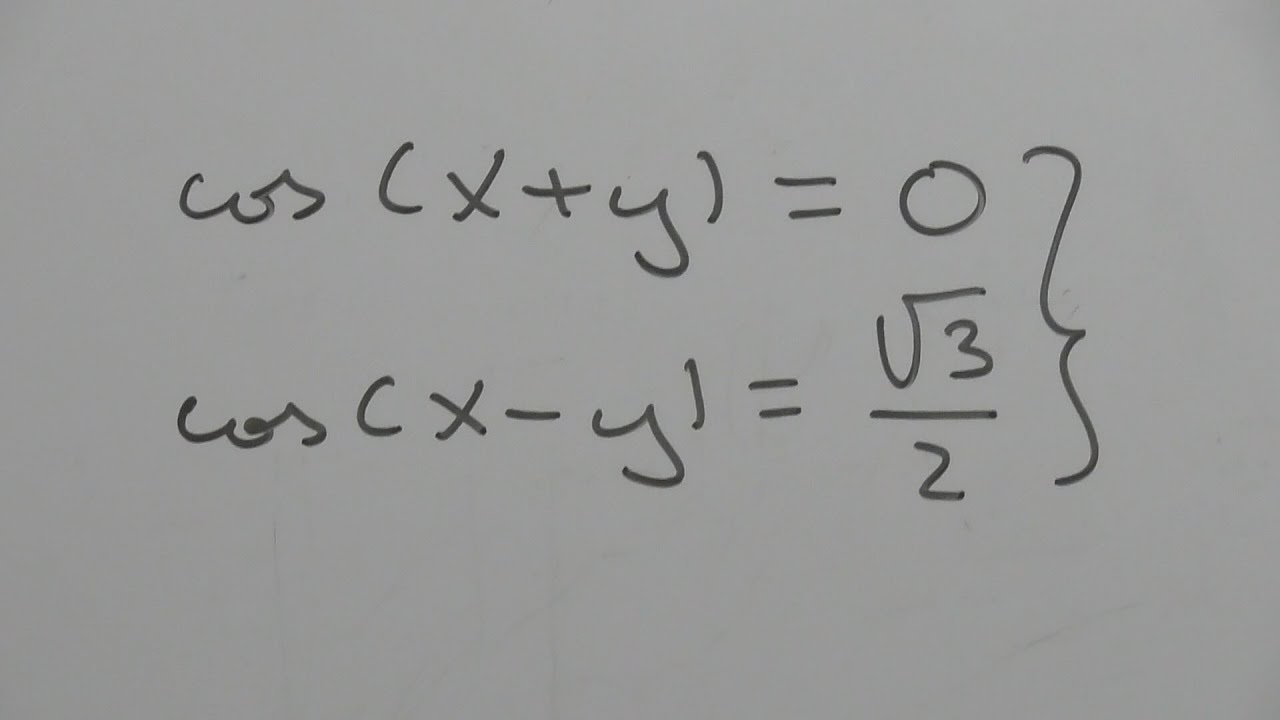 cos(x+y) = 0
cos(x-y) = √3/2